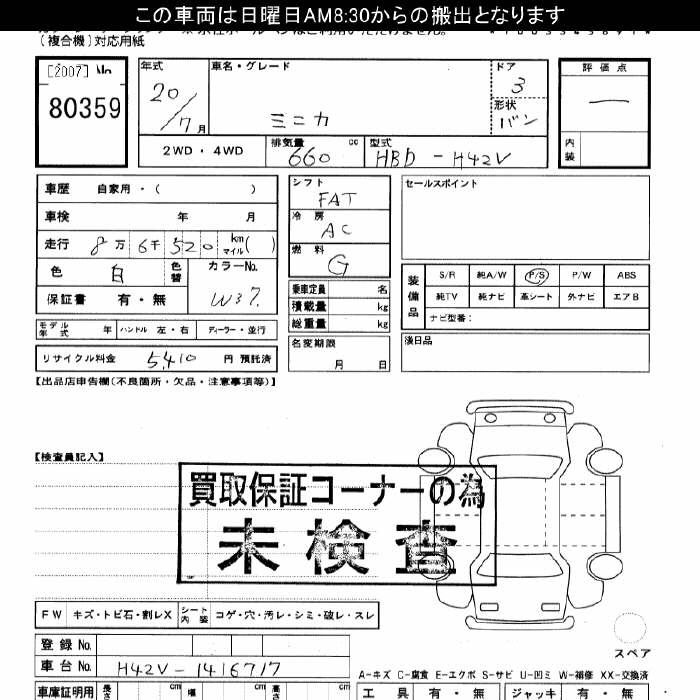 この車両は日曜日AM8:30からの搬出となります
(複合機)対応用紙
[2007] No
80359
年式 車名・グレード ドア 評価点
20/7月 ミニカ 3 一
形状 バン
2WD・4WD 排気量 660 cc 型式 HBD-H42V 内装
車歴 自家用・( )
シフト FAT
セールスポイント
車検 年 月
冷房 AC
走行 8万6千520 km マイル( )
燃料 G
色 白 色替 カラーNo. W37.
保証書 有・無
装備品 S/R 純A/W P/S P/W ABS
純TV 純ナビ 革シート 外ナビ エアB
ナビ型番:
乗車定員 名
積載量 kg
総重量 kg
モデル年式 年 ハンドル 左・右 ディーラー・並行
名変期限 月 日
滴日品
リサイクル料金 5,410 円 預託済
【出品店申告欄(不良箇所・欠品・注意事項等)】
【検査員記入】
買取保証コーナーの為
未検査
FW キズ・トビ石・割レX シート内装 コゲ・穴・汚レ・シミ・破レ・スレ
スペア
登録No.
車台No. H42V-1416717
A-キズ C-腐食 E-エクボ S-サビ U-凹ミ W-補修 XX-交換済
車庫証明用 長さ cm 幅 cm 高さ cm
工具 有・無 ジャッキ 有・無